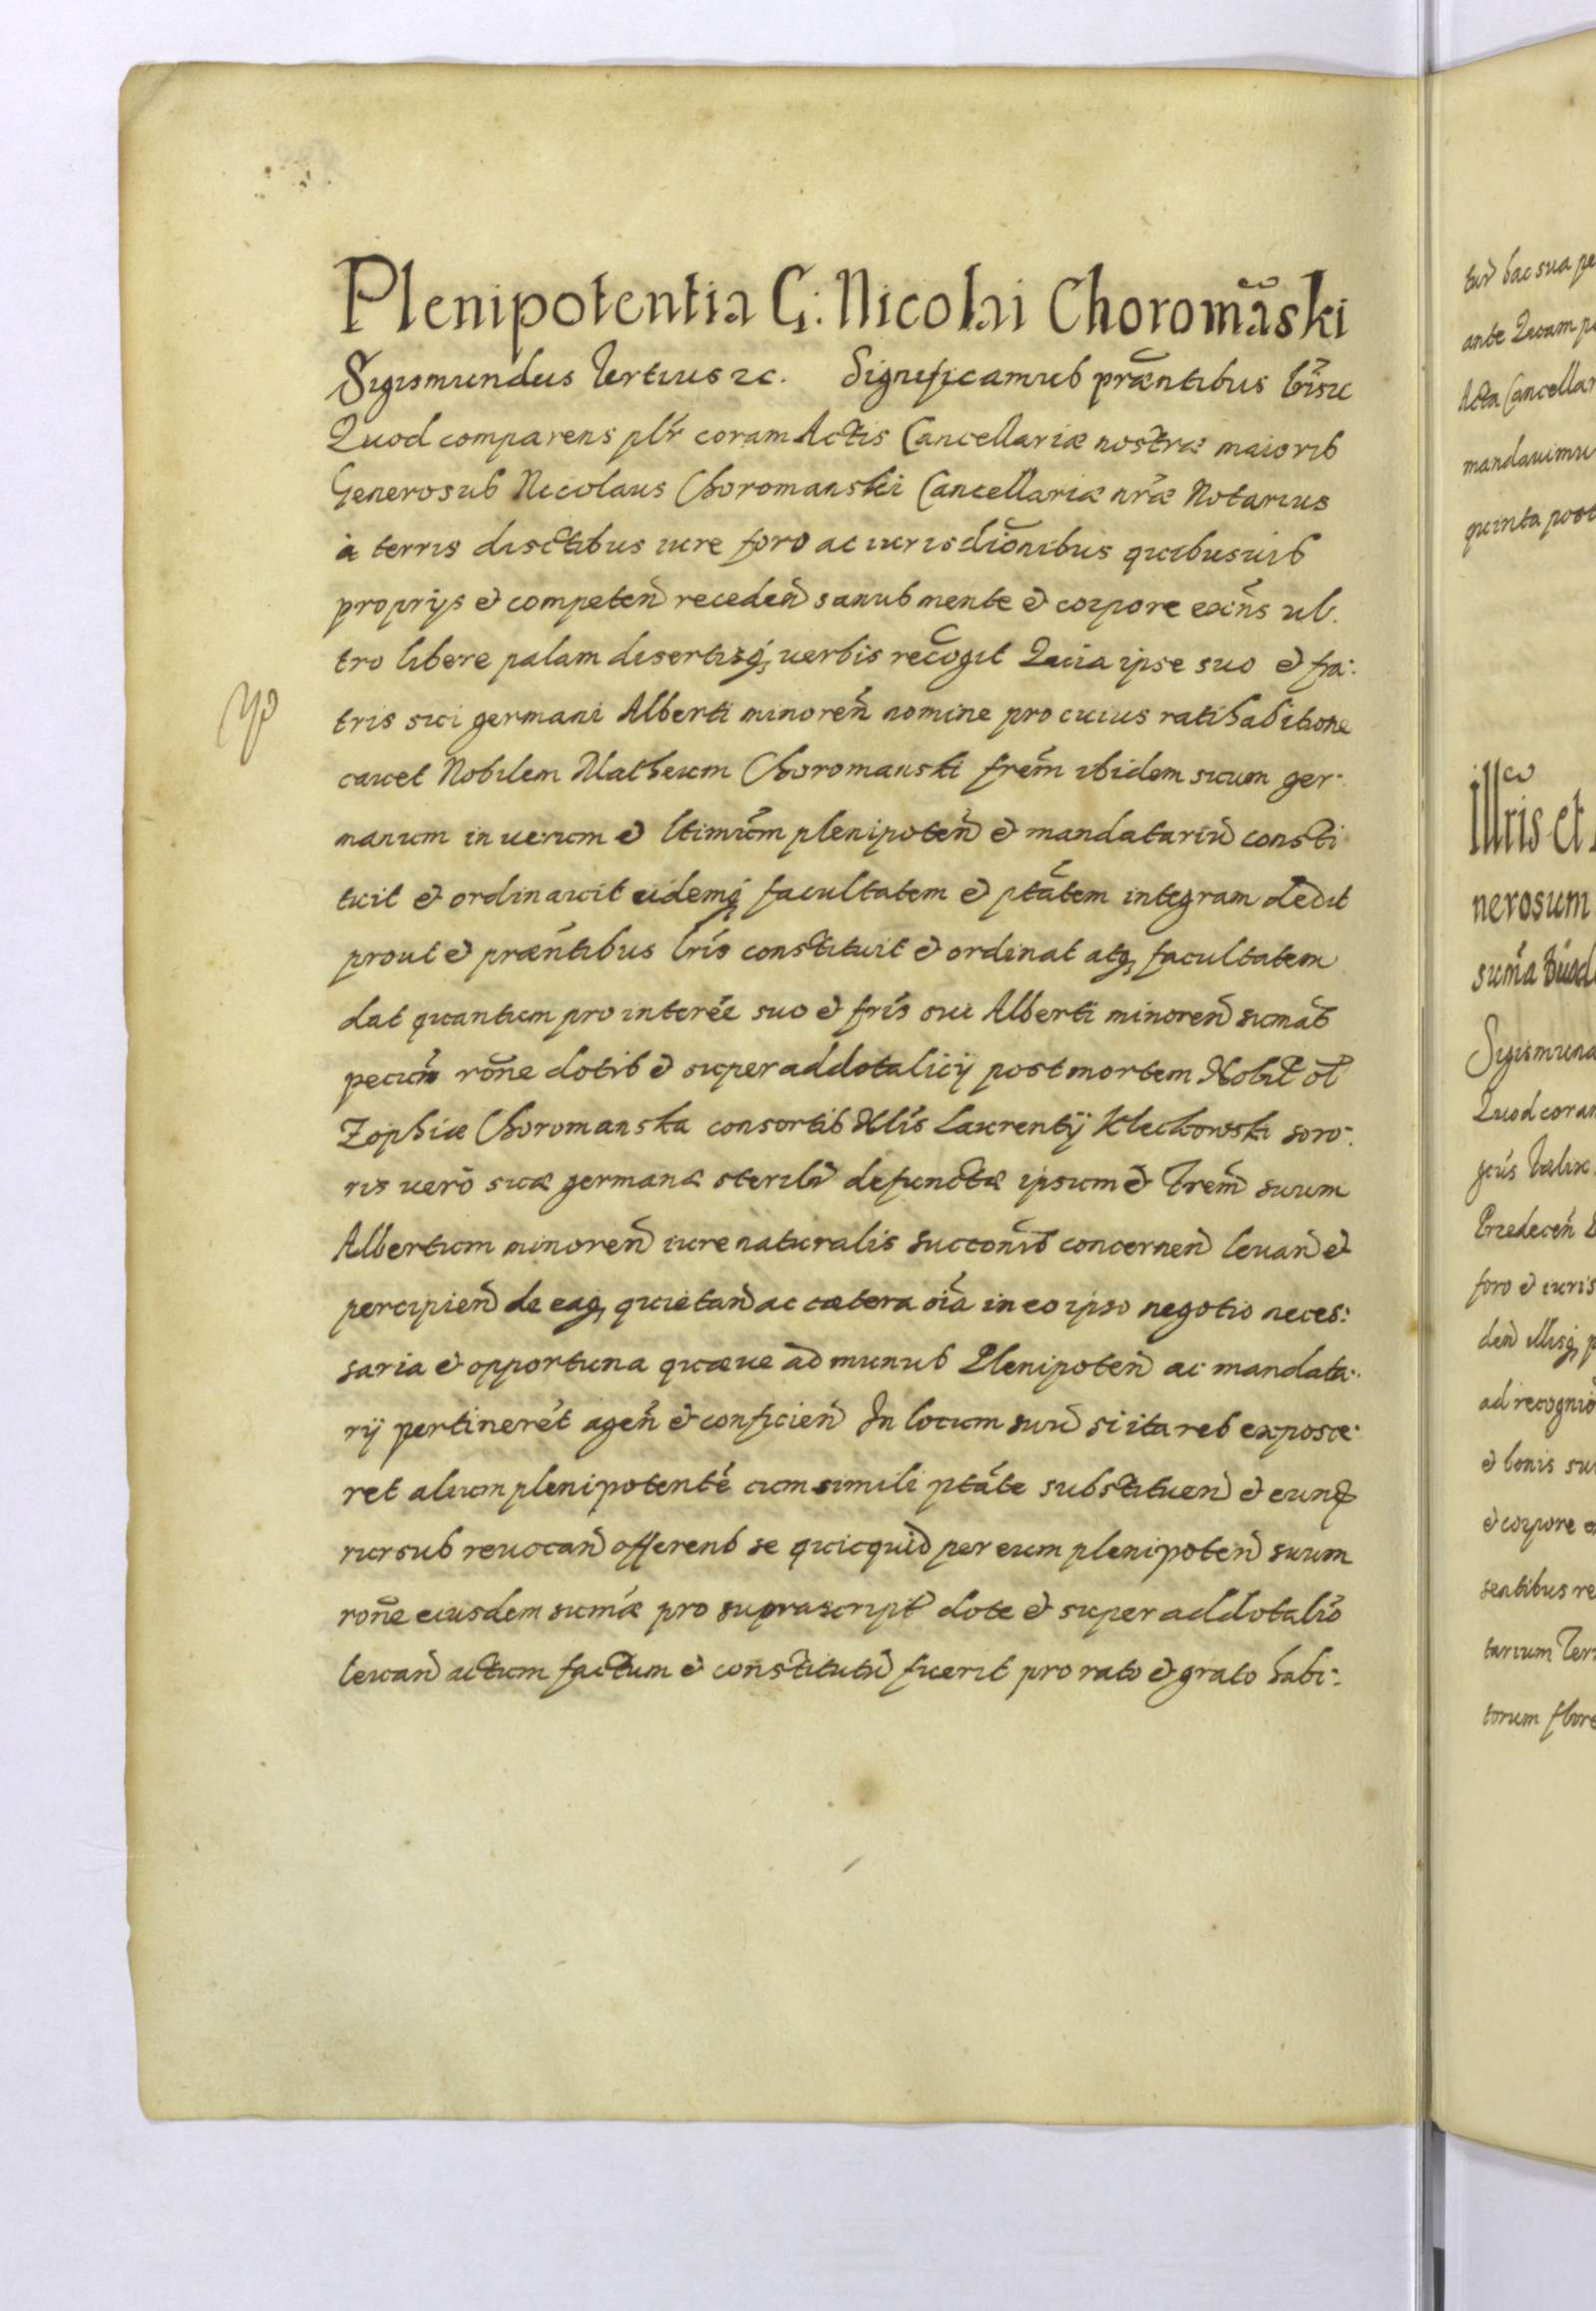 Plenipotentia G: Nicolai Choromãski
Sigismundus Tertius ꝛc. Significamus præntibus lris
Quod comparens plr coram Actis Cancellariæ nostræ maioris
Generosus Nicolaus Choromanski Cancellariæ nræ Notarius
à terris disctibus iure foro ac iurisdionibus quibusuis
proprijs et competeñ recedeñ sanus mente et corpore exñs ul.
tro libere palam disertisq uerbis recogit Quia ipse suo et fra:
tris sui germani Alberti minoreñ nomine pro cuius ratihabitione
cauet Nobilem Matheum Choromanski frem ibidem suum ger:
manum in uerum et ltimum plenipoteñ et mandatariũ consti
tuit et ordinauit eidemq facultatem et ptatem integram dedit
prout et præntibus lris constituit et ordinat atq facultatem
dat quantum pro interée suo et fris sui Alberti minoreñ sumas
pecuñ rone dotis et superaddotalicij post mortem Nobil ol
Zophiæ Choromanska consortis Nlis Laurentij Klechowski soro:
ris uero suæ germanæ steril defunctæ ipsum et frem suum
Albertum minoreñ iure naturalis succonis concerneñ leuañ et
percipieñ de eaq quietañ ac cætera oia in eo ipso negotio neces:
saria et opportuna quæue ad munus Plenipoteñ ac mandata:
rij pertineret ageñ et conficieñ In locum suũ si ita res exposce:
ret alium plenipotentẽ cum simili ptate substitueñ et eunq
rursus reuocañ offerens se quicquid per eum plenipoteñ suum
rone eiusdem sumæ pro suprascript dote et superaddotalio
leuañ actum factum et constitutũ fuerit pro rato et grato habi:
tur hac sua
ante
Acta Cancellar
mandauimu
quinta post
Illris et
nerosum
suma
Sigismund
Quod coram
foro et iuris
ad recognio
et bonis su
et corpore
sentibus re
tarium Terr
torum